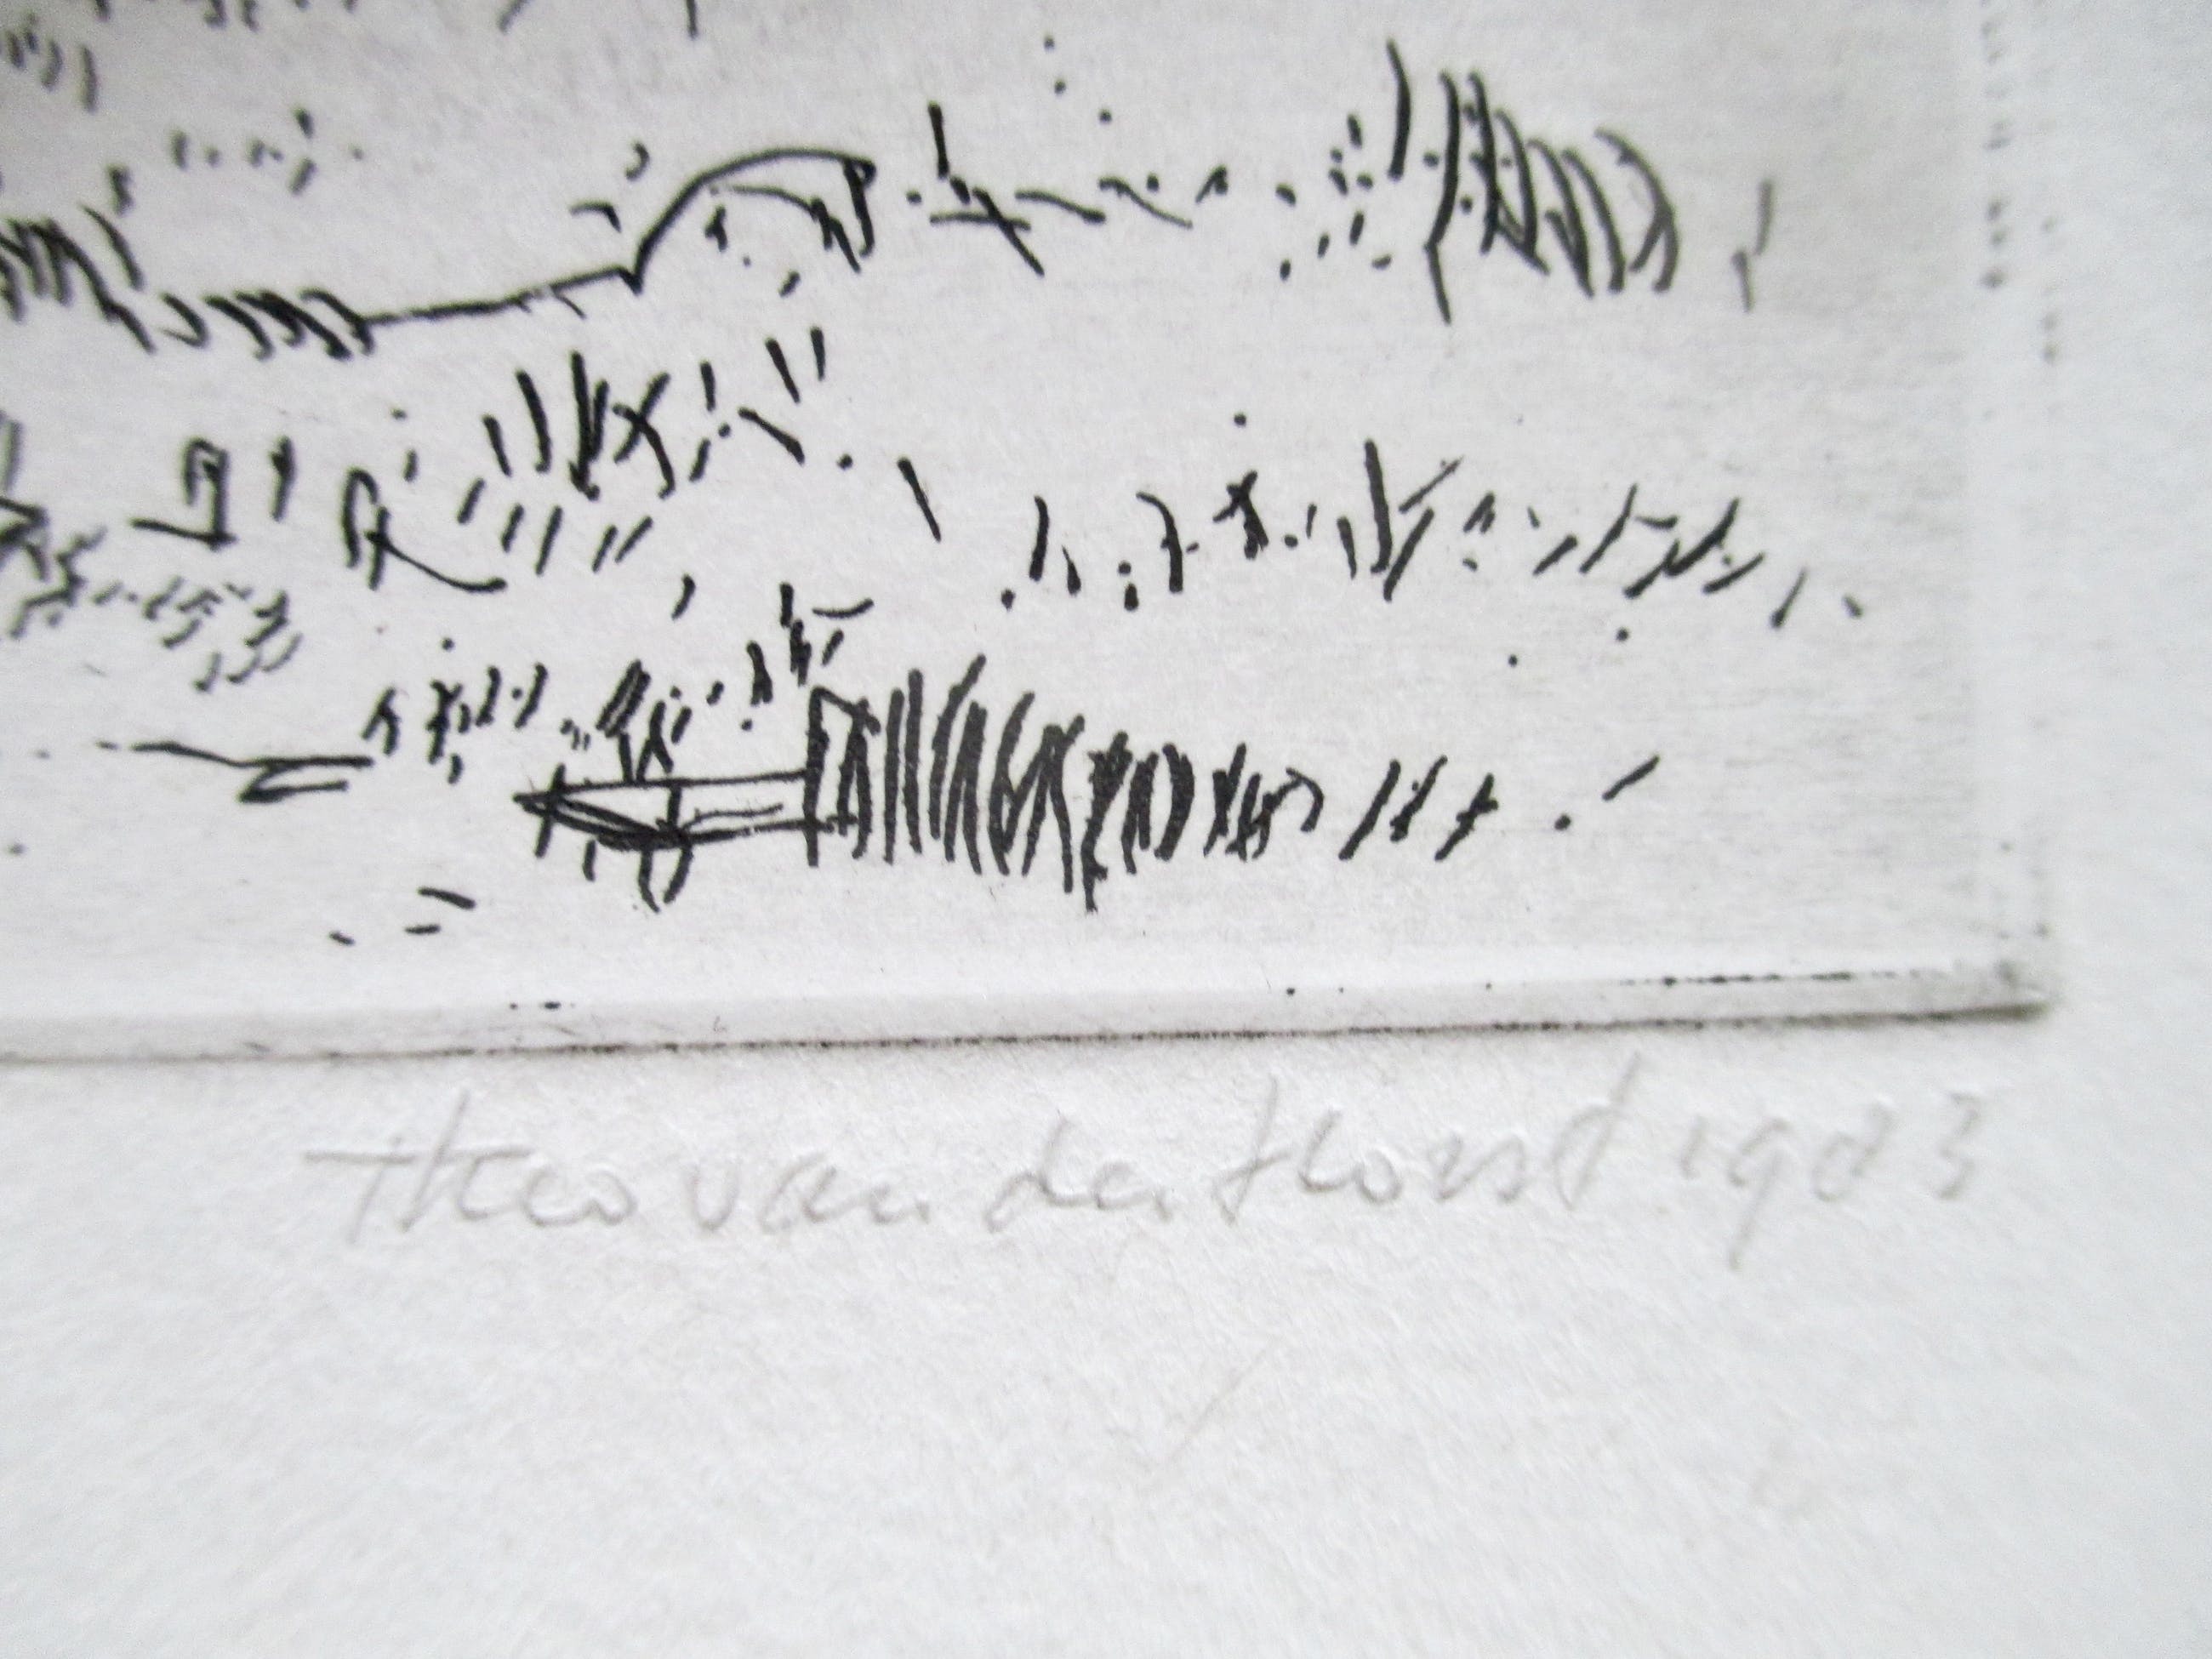 Theo van der Horst 1983